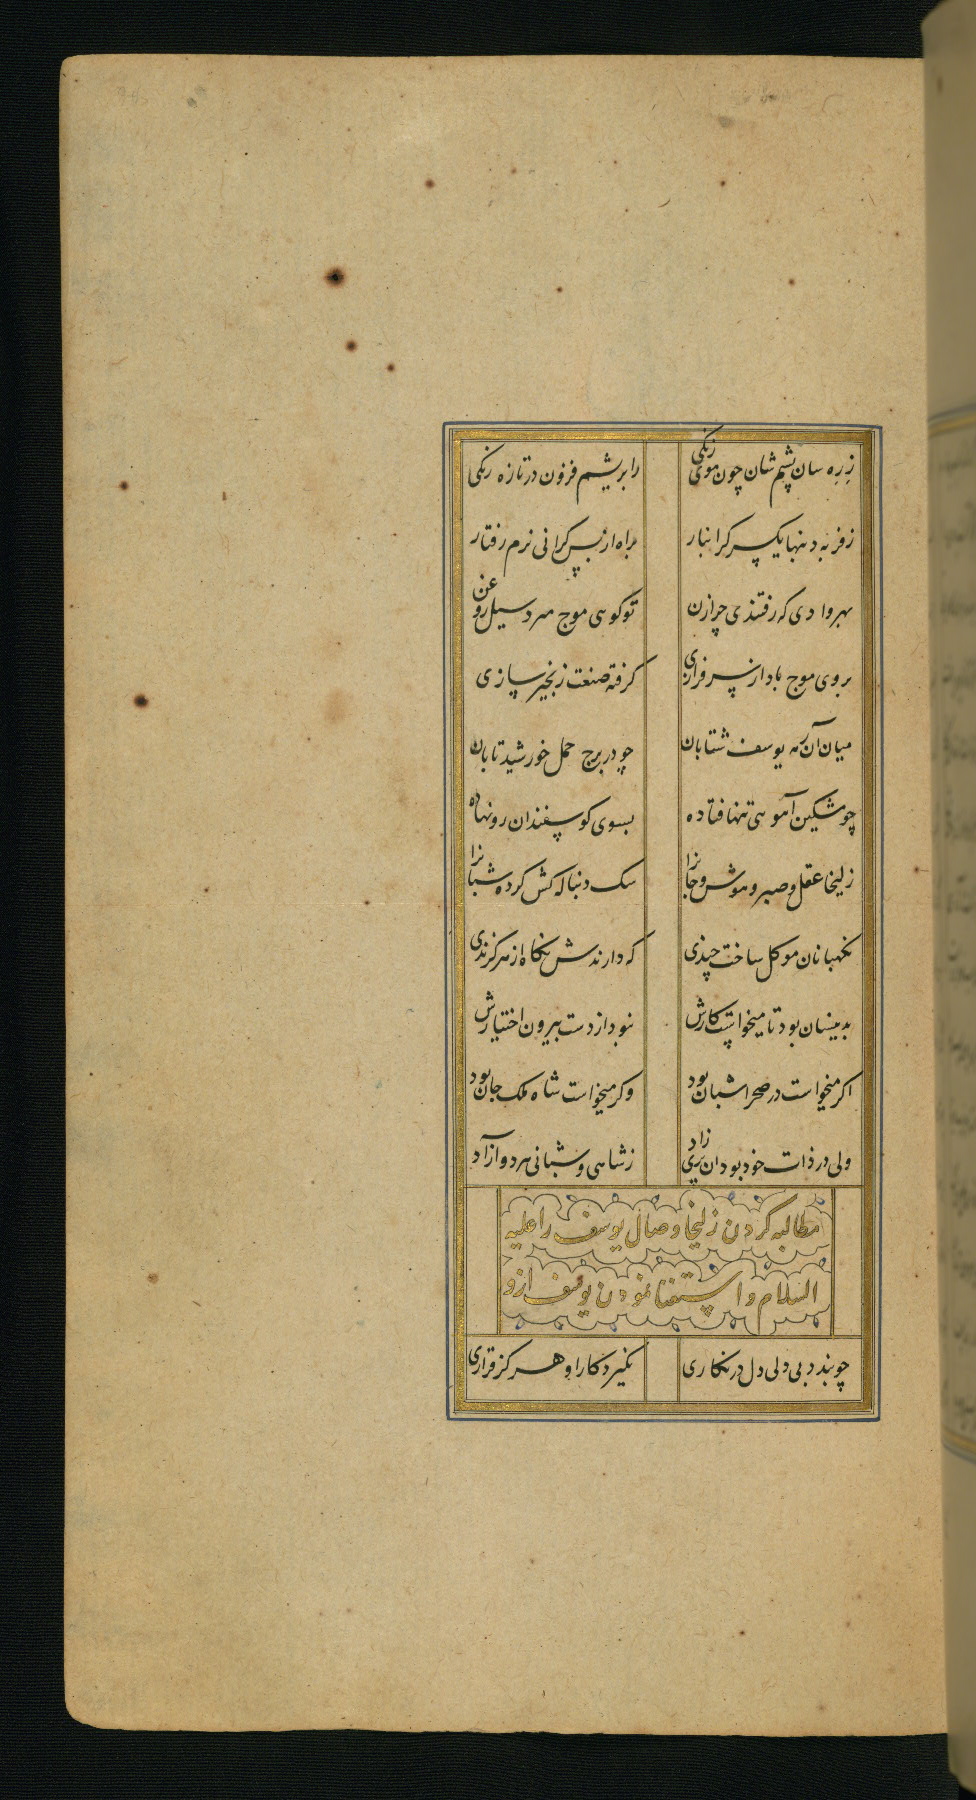 زره سان پشم شان چون موی زنکی    ز ابریشم فزون در تازه رنکی
ز فربه دنبها یکسر کرانبار    براه از بس کرانی نرم رفتار
بهر وادی که رفتندی چرازن    تو کوهی موج میزد سیل روغن
بروی موج باد از سرفرازی    کرفته صنعت زنجیرسازی
میان آن رمه یوسف شتابان    چو در برج حمل خورشید تابان
چو مشکین آهوی تنها فتاده    بسوی کوسفندان رو نهاده
زلیخا عقل و صبر و هوش و جانرا    سک دنباله کش کرده شبانرا
نکهبانان موکل ساخت چندی    که دارندش نکاه از هر کزندی
بدینسان بود تا میخواست کارش    نبود از دست بیرون اختیارش
اکر میخواست در صحرا شبان بود    و کر میخواست شاه ملک جان بود
ولی در ذات خود بود آن پری زاد    ز شاهی و شبانی هر دو آزاد
مطالبه کردن زلیخا وصال یوسف را علیه
السلام و استغنا نمودن یوسف ازو
چو بندد بی دلی دل در نکاری    نکیرد کار او هرکز قراری